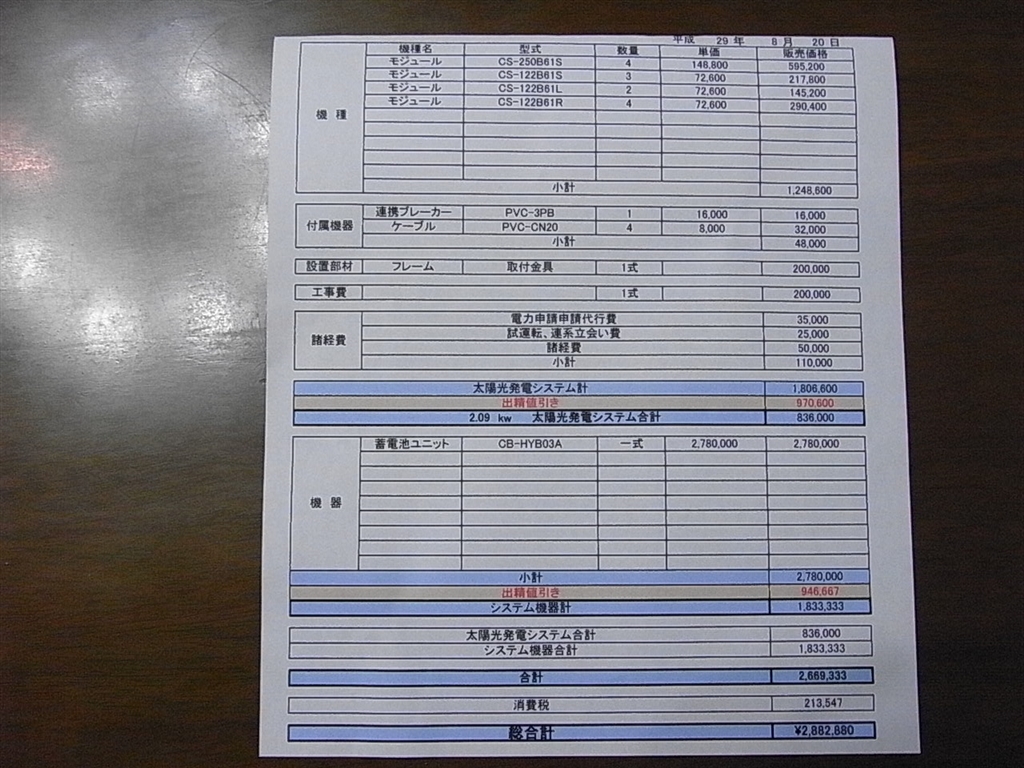 平成 29 年 8 月 20 日
機種名 型式 数量 単価 販売価格
モジュール CS-250B61S 4 148,800 595,200
モジュール CS-122B61S 3 72,600 217,800
モジュール CS-122B61L 2 72,600 145,200
モジュール CS-122B61R 4 72,600 290,400
機 種
小計 1,248,600
連携ブレーカー PVC-3PB 1 16,000 16,000
付属機器 ケーブル PVC-CN20 4 8,000 32,000
小計 48,000
設置部材 フレーム 取付金具 1式 200,000
工事費 1式 200,000
電力申請申請代行費 35,000
試運転、連系立会い費 25,000
諸経費 諸経費 50,000
小計 110,000
太陽光発電システム計 1,806,600
出精値引き 970,600
2.09 kw 太陽光発電システム合計 836,000
蓄電池ユニット CB-HYB03A 一式 2,780,000 2,780,000
機 器
小計 2,780,000
出精値引き 946,667
システム機器計 1,833,333
太陽光発電システム合計 836,000
システム機器合計 1,833,333
合計 2,669,333
消費税 213,547
総合計 ¥2,882,880